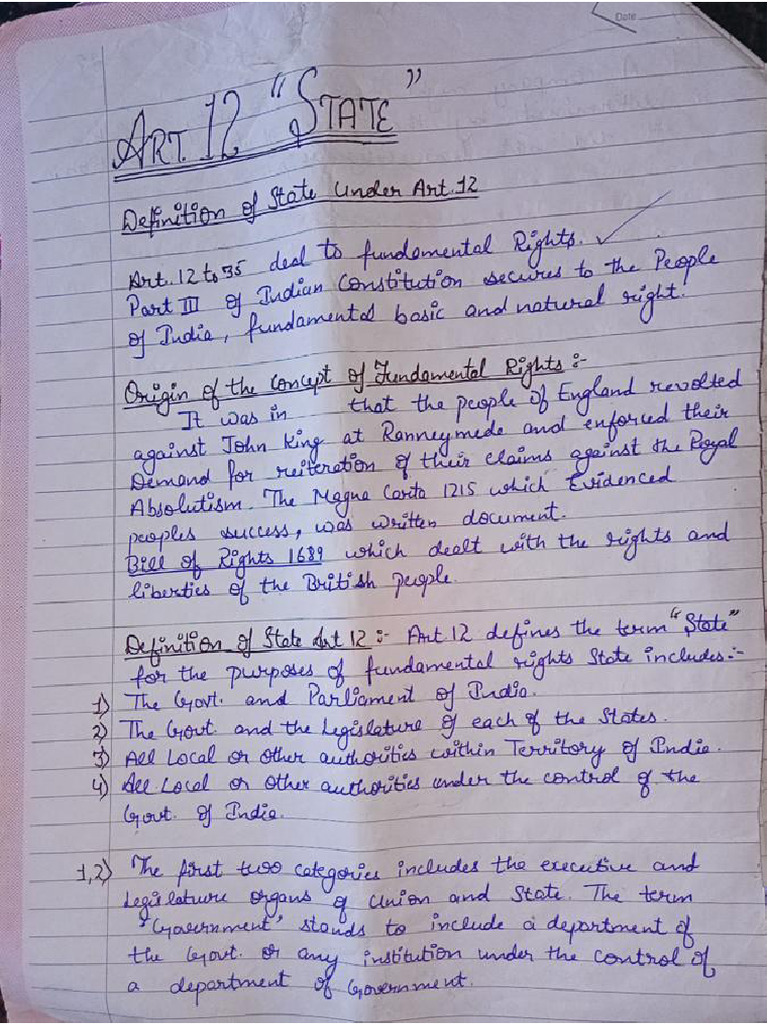 Date
ART. 12 "STATE"
Definition of State Under Art. 12
Art. 12 to 35 deal to fundamental Rights.
Part III of Indian Constitution secures to the People
of India, fundamental basic and natural right.
Origin of the Concept of Fundamental Rights :-
It was in that the people of England revolted
against John King at Ranneymede and enforced their
Demand for reiteration of their claims against the Royal
Absolutism. The Magna Carta 1215 which Evidenced
peoples success, was written document.
Bill of Rights 1689 which dealt with the rights and
liberties of the British people.
Definition of State Art 12 :- Art 12 defines the term "State"
for the purposes of fundamental rights State includes:-
1) The Govt. and Parliament of India.
2) The Govt. and the Legislature of each of the States.
3) All Local or Other authorities within Territory of India.
4) All Local or Other authorities under the control of the
Govt. of India.
1,2) The first two categories includes the executive and
Legislature organs of Union and State. The term
"Government" stands to include a department of
the Govt. or any institution under the control of
a department of Government.